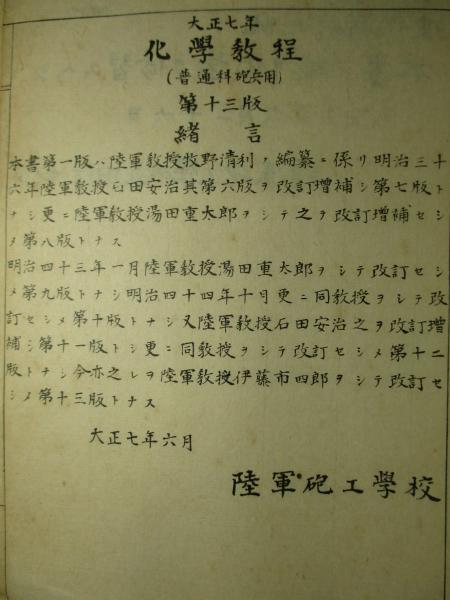 大正七年
化學教程
(普通科砲兵用)
第十三版
緒言
本書第一版ハ陸軍教授牧野清利ノ編纂ニ係リ明治三十
六年陸軍教授石田安治其第六版ヲ改訂增補シ第七版ト
ナシ更ニ陸軍教授湯田重太郎ヲシテ之ヲ改訂增補セシ
メ第八版トナス
明治四十三年一月陸軍教授湯田重太郎ヲシテ改訂セシ
メ第九版トナシ明治四十四年十月更ニ同教授ヲシテ改
訂セシメ第十版トナシ又陸軍教授石田安治之ヲ改訂增
補シ第十一版トシ更ニ同教授ヲシテ改訂セシメ第十二
版トナシ今亦之レヲ陸軍教授伊藤市四郎ヲシテ改訂セ
シメ第十三版トナス
大正七年六月
陸軍砲工學校